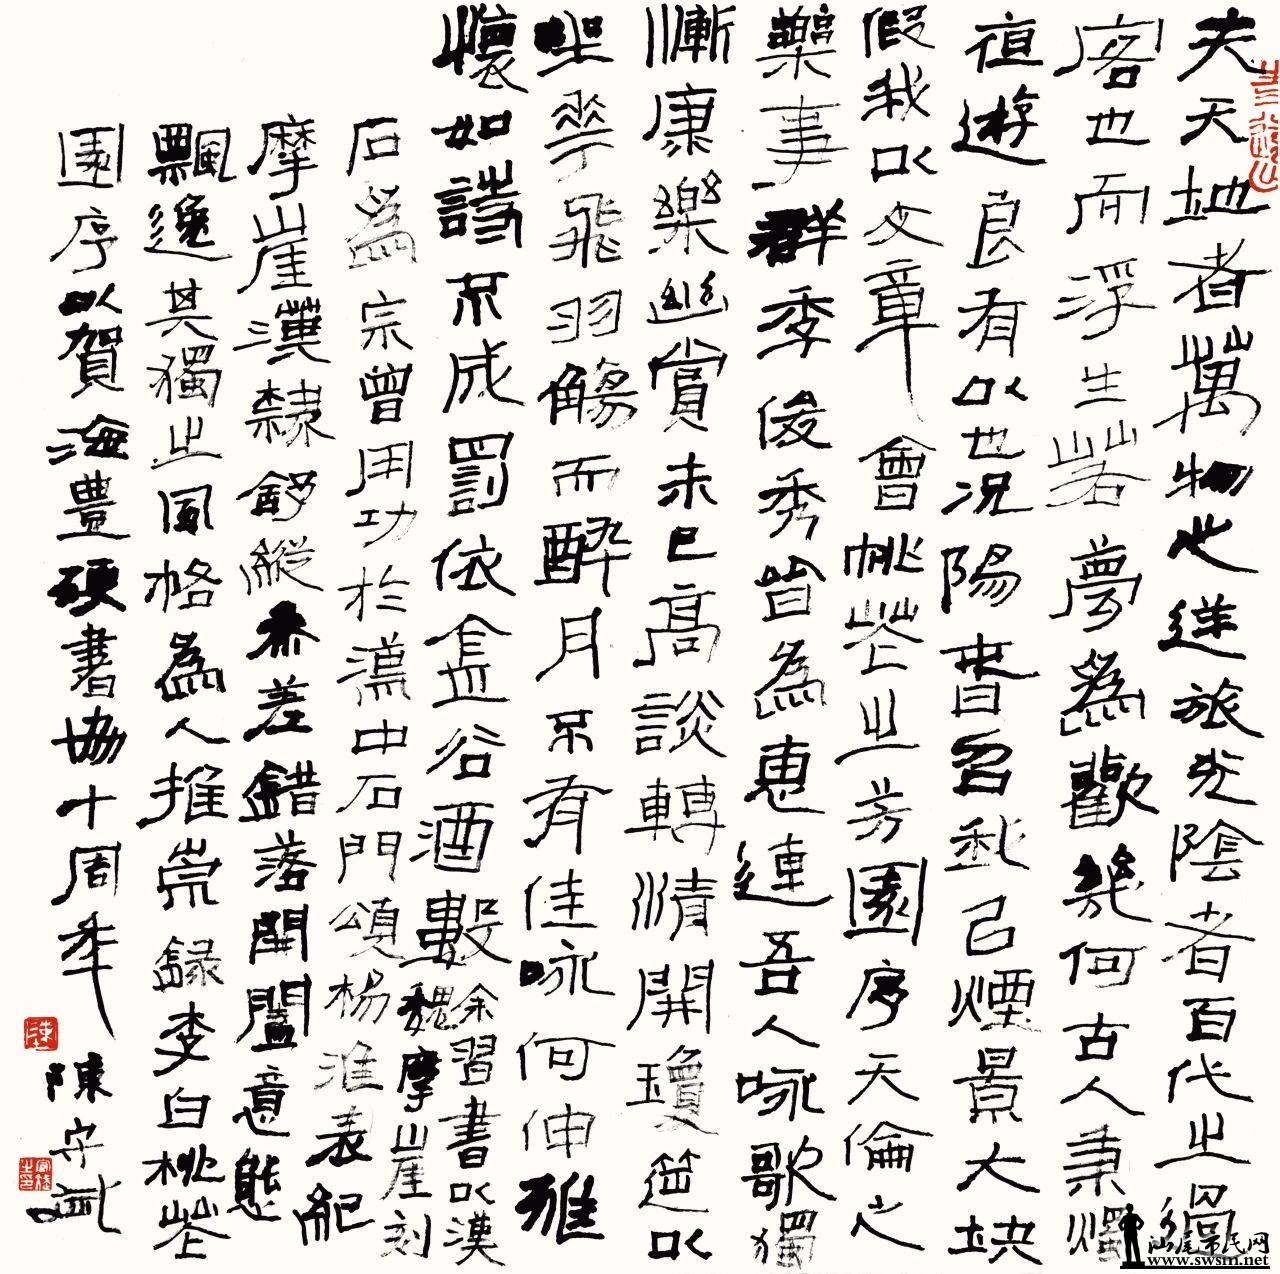 夫天地者萬物之逆旅光陰者百代之過
客也而浮生若夢為歡幾何古人秉燭
夜遊良有以也况陽春召我已煙景大块
假我以文章會桃花之芳園序天倫之
樂事群季俊秀皆為惠連吾人咏歌獨
慚康樂幽賞未已高談轉清開瓊筵以
坐花飛羽觴而醉月不有佳咏何伸雅
懷如詩不成罰依金谷酒數
余習書以漢
魏摩崖刻
石為宗曾用功於漢中石門頌楊淮表紀
摩崖漢隸舒縱參差錯落開闔意態
飄逸其獨之風格為人推崇録李白桃花
園序以賀海豊硬書協十周年
陳守
汕尾市民网
www.swsm.net